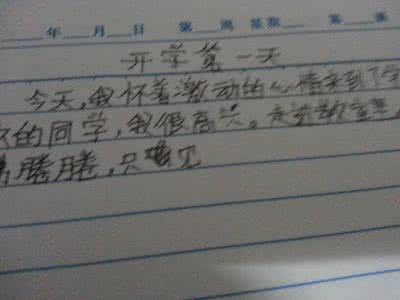 年 月 日 第 周 星期 第 课
开学第一天
今天,我怀着激动的心情来到了学
的同学,我很高兴。走进教室里,
腾腾,只见